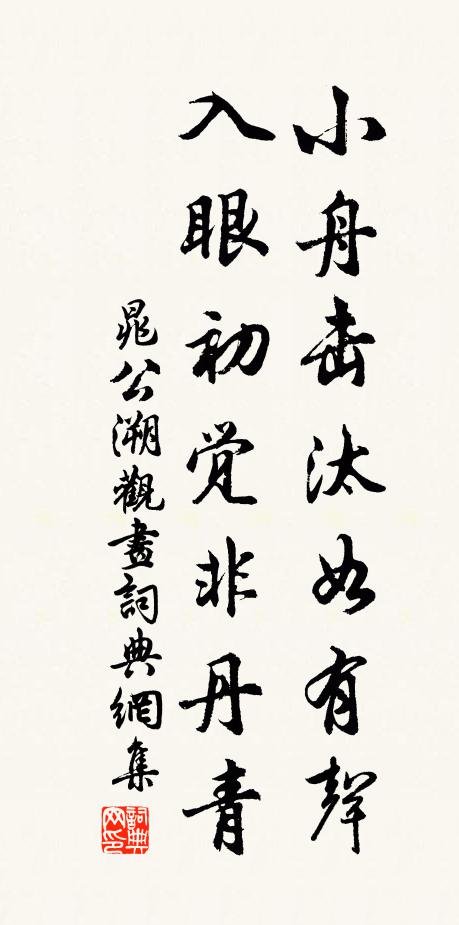 小舟击汰如有聲
入眼初觉非丹青
晁公溯觀畫詞典網集
詞典网印